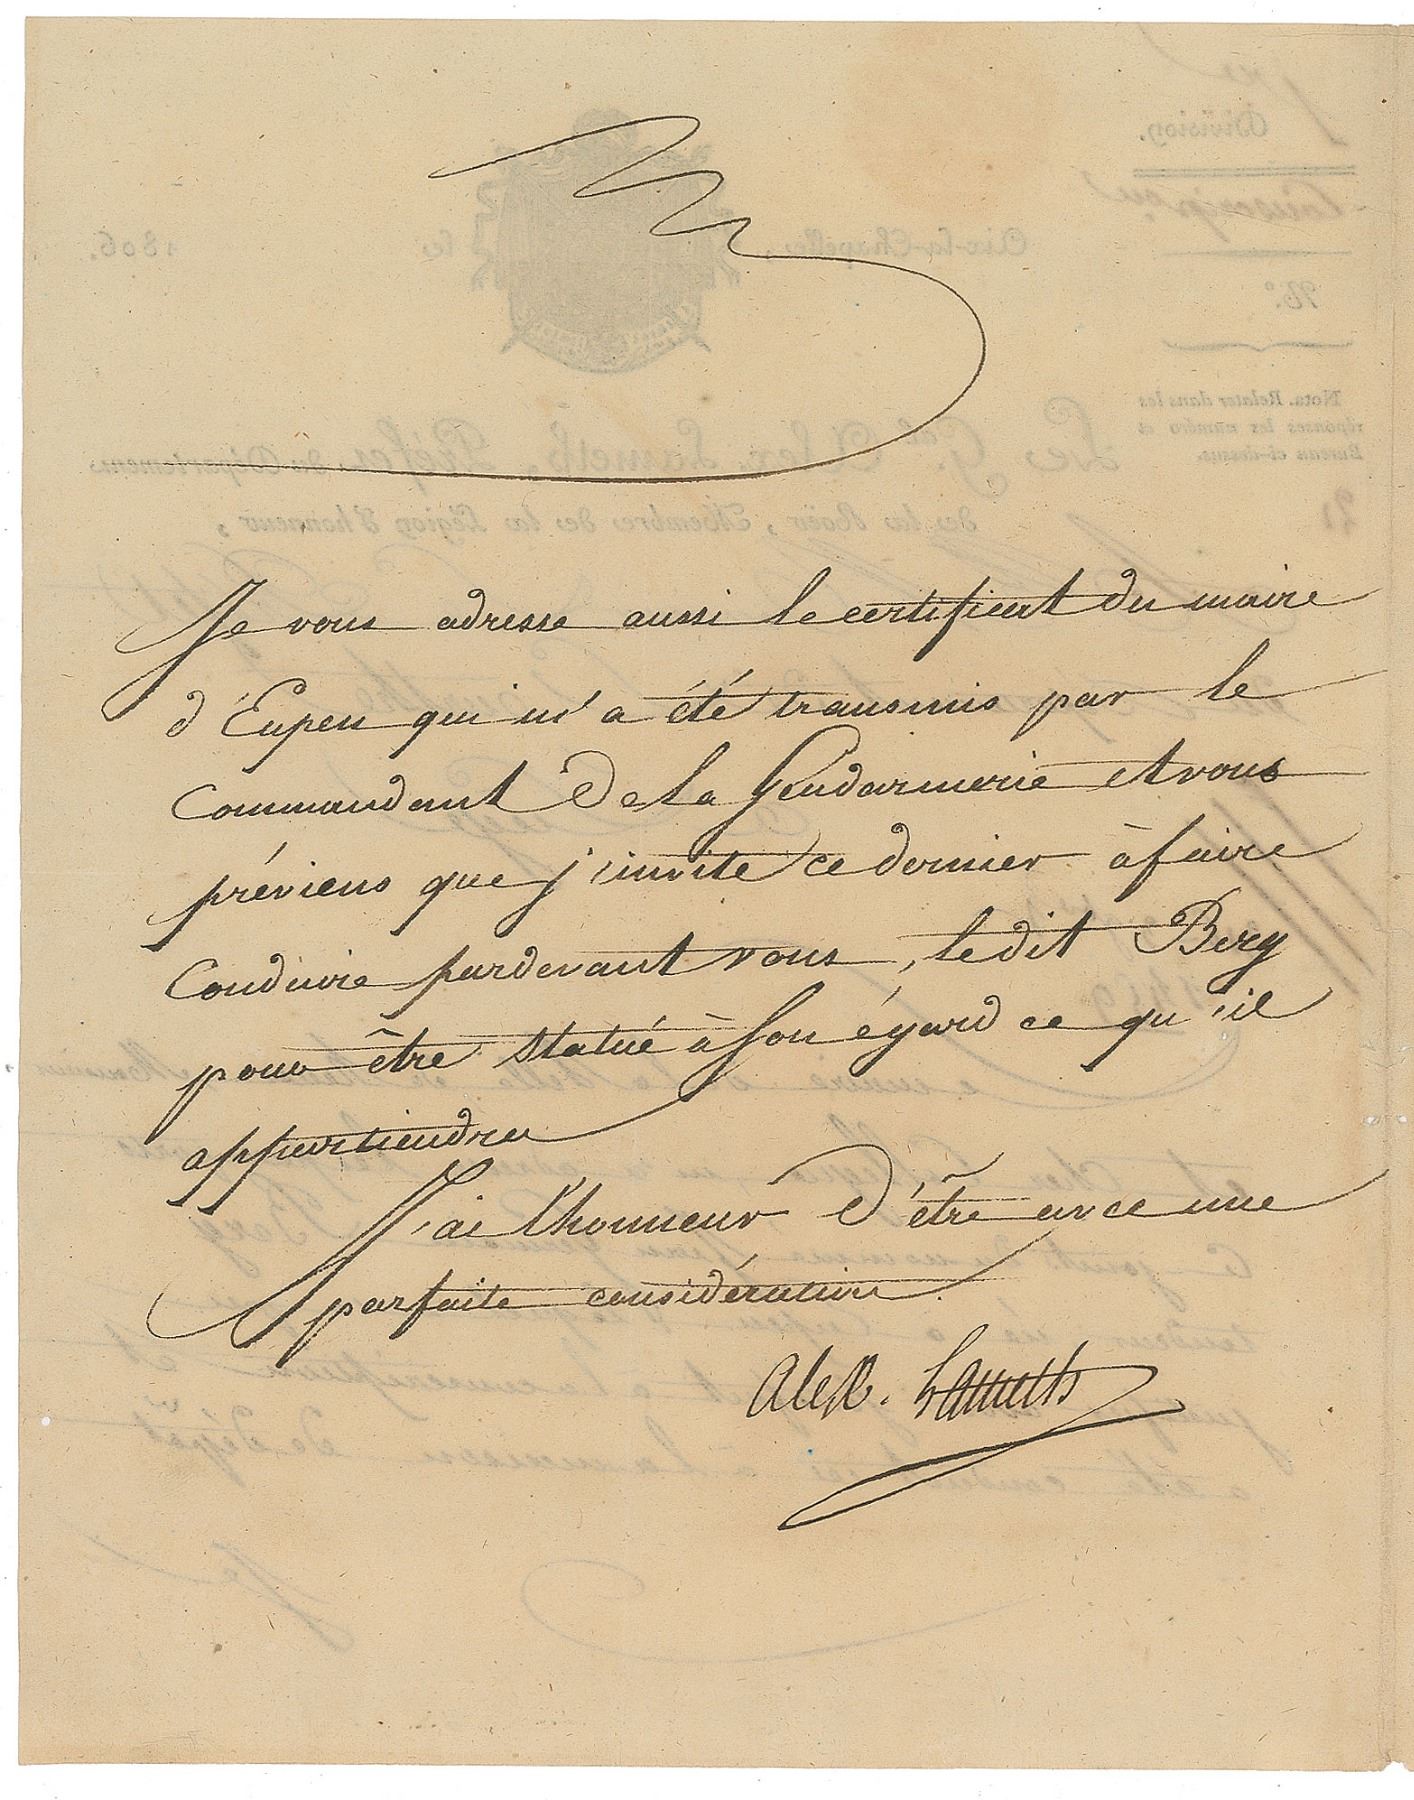 Je vous adresse aussi le certificat du maire
d'Eupen qui m'a été transmis par le
Commandant De la Gendarmerie et vous
préviens que j'invite ce dernier à faire
Conduire pardevant vous, le dit Berg
pour être statué à son égard ce qu'il
appartiendra
J'ai l'honneur d'être avec une
parfaite considération.
Alex. Lameth